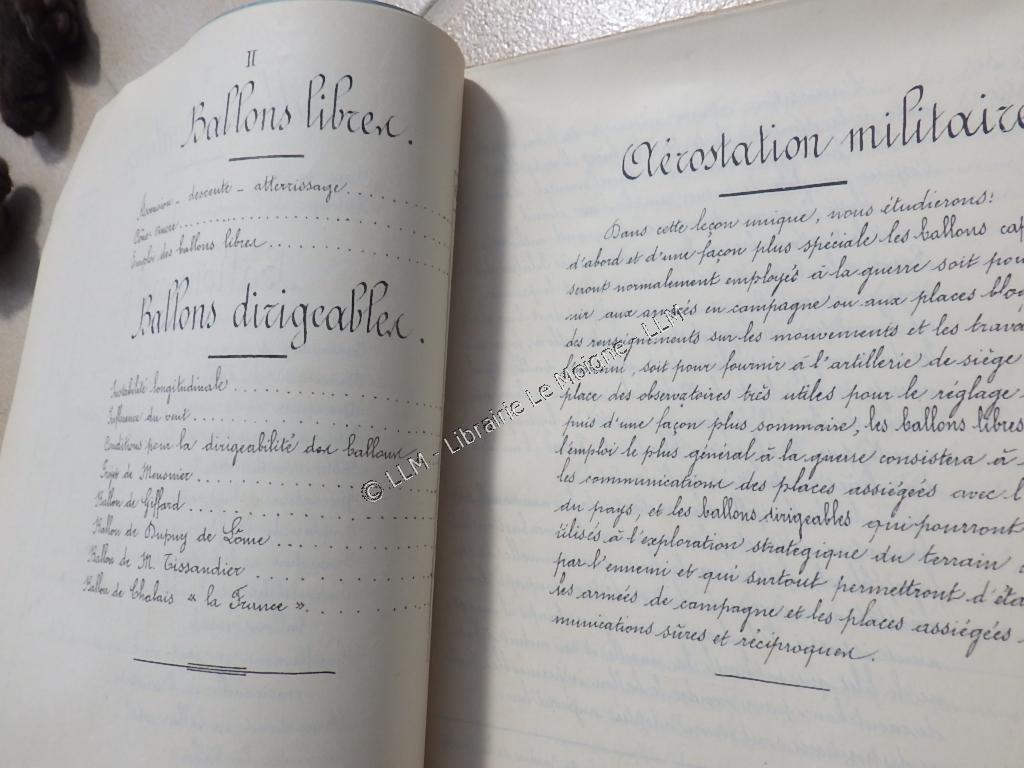 II
Ballons libres.
Ascension - descente - atterrissage
Cône-ancre
Emploi des ballons libres
Ballons dirigeables.
Instabilité longitudinale
Influence du vent
Conditions pour la dirigeabilité des ballons
Projet de Meusnier
Ballon de Giffard
Ballon de Dupuy de Lôme
Ballon de M. Tissandier
Ballon de Chalais « la France ».
Aérostation militaire
Dans cette leçon unique, nous étudierons:
d'abord et d'une façon plus spéciale les ballons cap
seront normalement employés à la guerre soit pou
nir aux armées en campagne ou aux places bloq
des renseignements sur les mouvements et les trava
l'ennemi, soit pour fournir à l'artillerie de siège
place des observatoires très utiles pour le réglage
puis d'une façon plus sommaire, les ballons libres
l'emploi le plus général à la guerre consistera à
les communications des places assiégées avec l
du pays, et les ballons dirigeables qui pourront
utilisés à l'exploration stratégique du terrain
par l'ennemi et qui surtout permettront d'éta
les armées de campagne et les places assiégées
munications sûres et réciproques.
© LLM - Librairie Le Moigne - LLM